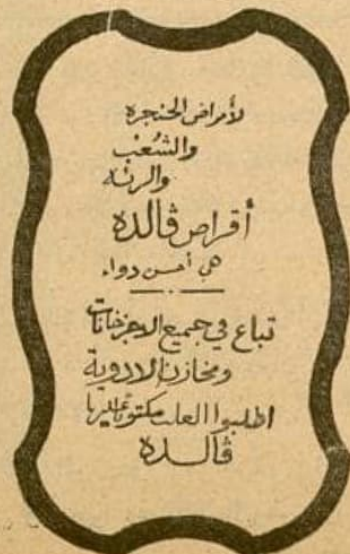 لأمراض الحنجرة
والشُعب
والرئة
أقراص ڤالده
هي أحسن دواء
تباع في جميع الاجزخانات
ومخازن الادوية
اطلبوا العلب مكتوبا عليها
ڤالده